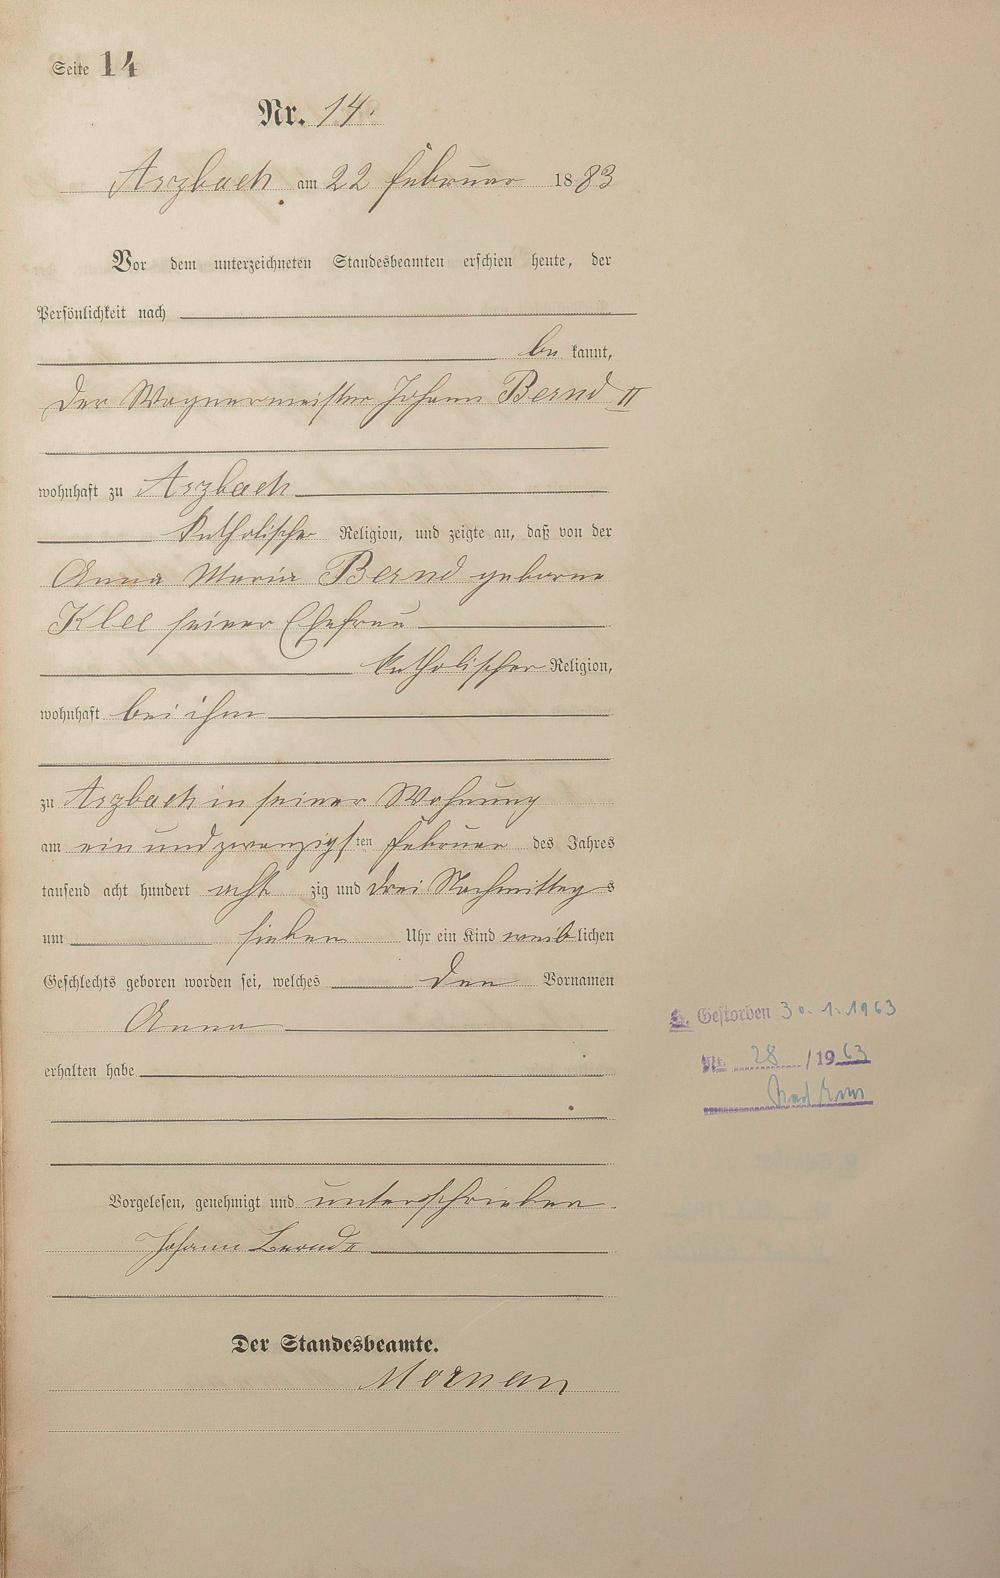 Seite 14
Nr. 14.
Arzbach am 22 Februar 1883
Vor dem unterzeichneten Standesbeamten erschien heute, der
Persönlichkeit nach
be kannt,
der Wagnermeister Johann Bernd II
wohnhaft zu Arzbach
katholischer Religion, und zeigte an, daß von der
Anna Maria Bernd geborne
Klee seiner Ehefrau
katholischer Religion,
wohnhaft bei ihm
zu Arzbach in seiner Wohnung
am ein und zwanzigsten Februar des Jahres
tausend acht hundert acht zig und drei Nachmittags
um sieben Uhr ein Kind weiblichen
Geschlechts geboren worden sei, welches den Vornamen
Anna
erhalten habe
Vorgelesen, genehmigt und unterschrieben
Johann Bernd
Der Standesbeamte.
Gestorben 30.1.1963
Nr. 28/1963
Bad Ems